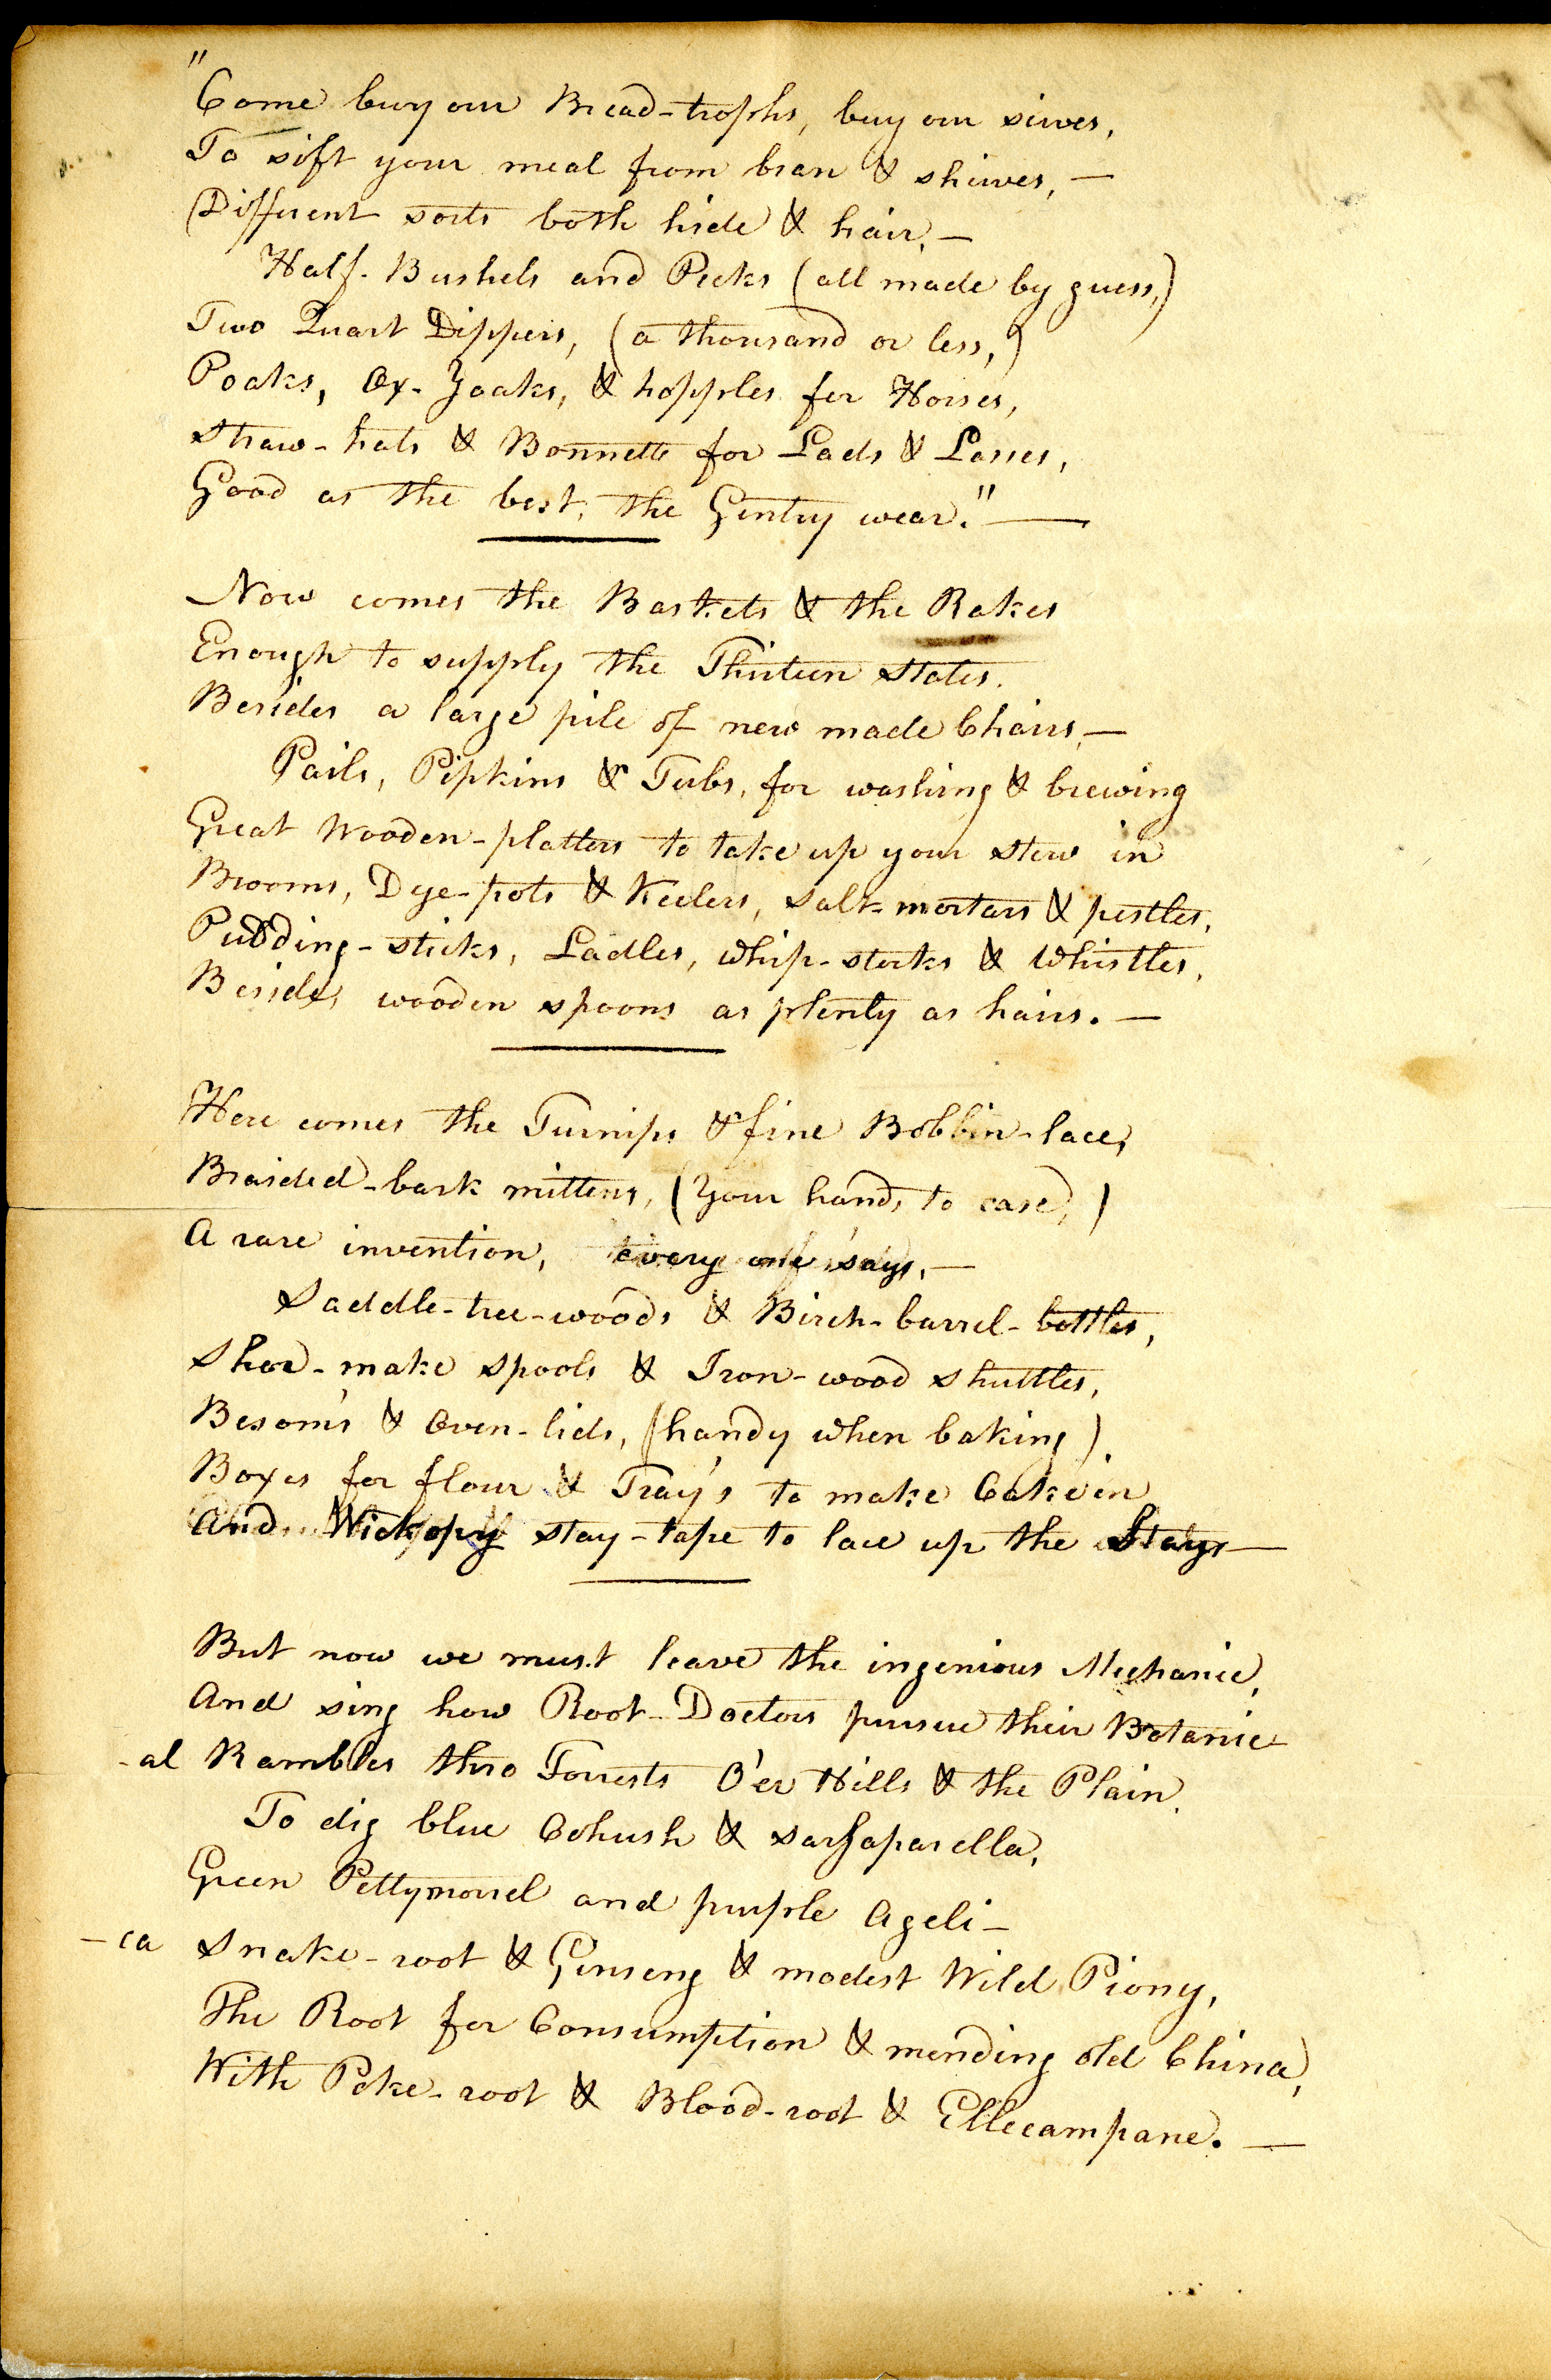 "Come buy our Bread-trophs, buy our sieves,
To sift your meal from bran & shives, —
Different sorts both hide & hair, —
Half-Bushels and Pecks (all made by guess,)
Two Quart Dippers, (a thousand or less,)
Poaks, Ox-Yoaks, & hopples for Horses,
Straw-hats & Bonnetts for Lads & Lasses,
Good as the best, the Gentry wear." —
Now comes the Baskets & the Rakes
Enough to supply the Thirteen States.
Besides a large pile of new made Chairs, —
Pails, Pipkins & Tubs, for washing & brewing
Great Wooden-platters to take up your stew in
Brooms, Dye-pots & Keelers, Salt-mortars & pestles,
Pudding-sticks, Ladles, Whip-stocks & Whistles,
Besides, wooden spoons as plenty as hairs. —
Here comes the Turnips & fine Bobbin-lace,
Braided-bark mittens, (your hands to ease,)
A rare invention, every one says, —
Saddle-tree-woods & Birch-barrel-bottles,
Shoe-make Spools & Iron-wood Shuttles,
Besom's & Oven-lids, (handy when baking)
Boxes for flour & Tray's to make Cake in
And Wickopy stay-tape to lace up the Stays —
But now we must leave the ingenious Mechanic,
And sing how Root-Doctors pursue their Botanic-
-al Rambles thro Forrests O'er Hills & the Plain
To dig blue Cohush & Sarsaparella,
Green Pettymorrel and purple Ageli-
-ca Snake-root & Ginseng & modest Wild Piony,
The Root for Consumption & mending old China,
With Poke-root & Blood-root & Ellecampane. —